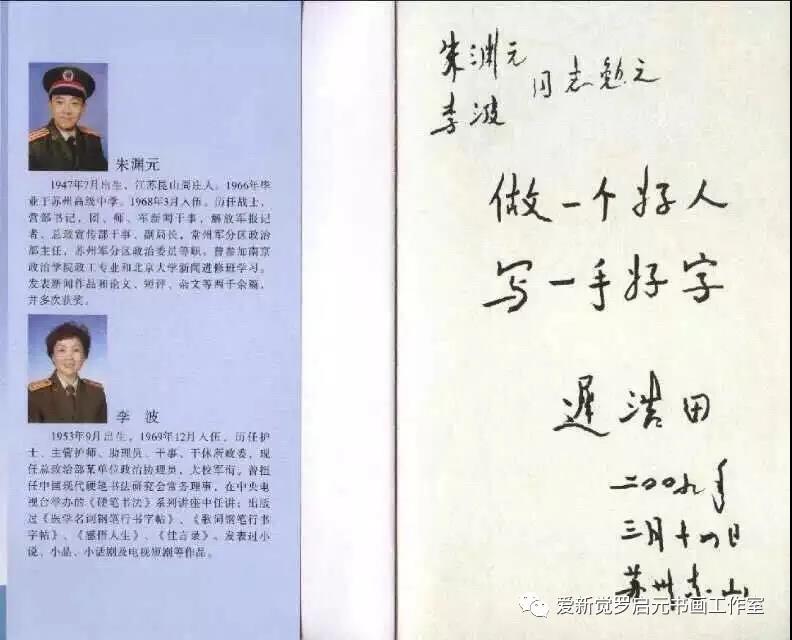 朱渊元
1947年7月出生，江苏昆山周庄人。1966年毕
业于苏州高级中学。1968年3月入伍。历任战士，
营部书记，团、师、军新闻干事，解放军报记
者、总政宣传部干事、副局长，常州军分区政治
部主任，苏州军分区政治委员等职。曾参加南京
政治学院政工专业和北京大学新闻进修班学习。
发表新闻作品和论文、短评、杂文等两千余篇，
并多次获奖。
李 波
1953年9月出生，1969年12月入伍，历任护
士、主管护师、助理员、干事、干休所政委，现
任总政治部某单位政治协理员，大校军衔。曾担
任中国现代硬笔书法研究会常务理事，在中央电
视台举办的《硬笔书法》系列讲座中任讲；出版
过《医学名词钢笔行书字帖》、《歌词钢笔行书
字帖》、《感悟人生》、《佳言录》。发表过小
说、小品、小话剧及电视短剧等作品。
朱渊元
李波
同志勉之
做一个好人
写一手好字
迟浩田
二00九年
三月十四日
苏州东山
爱新觉罗启元书画工作室